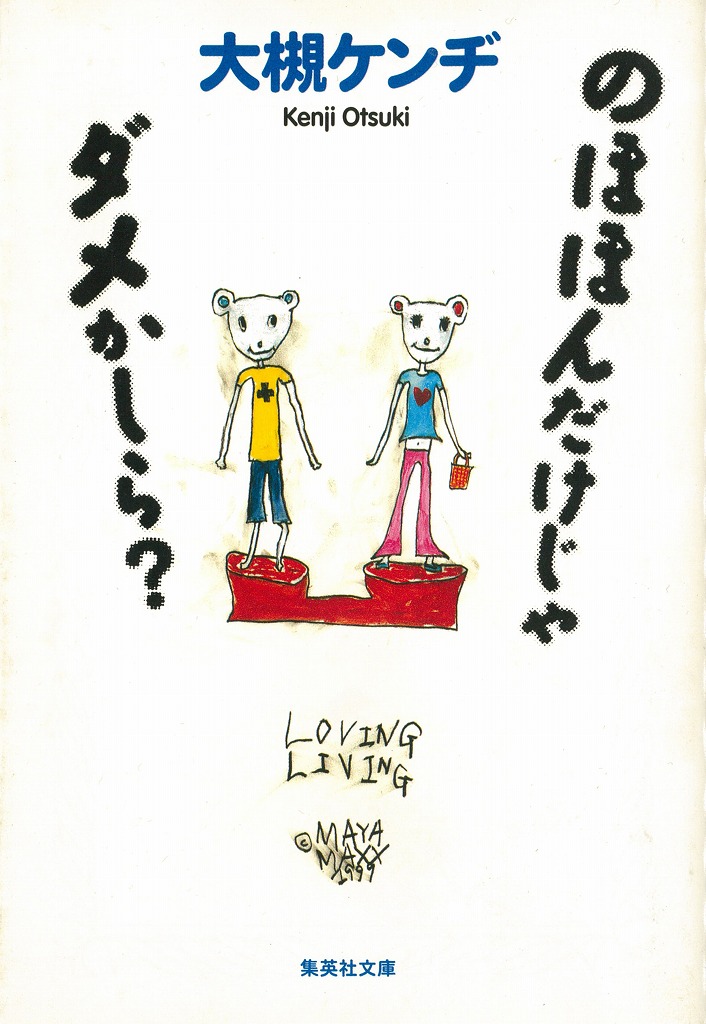 大槻ケンヂ
Kenji Otsuki
のほほんだけじゃ
ダメかしら?
LOVING
LIVING
© MAYA
MAXX
1999
集英社文庫